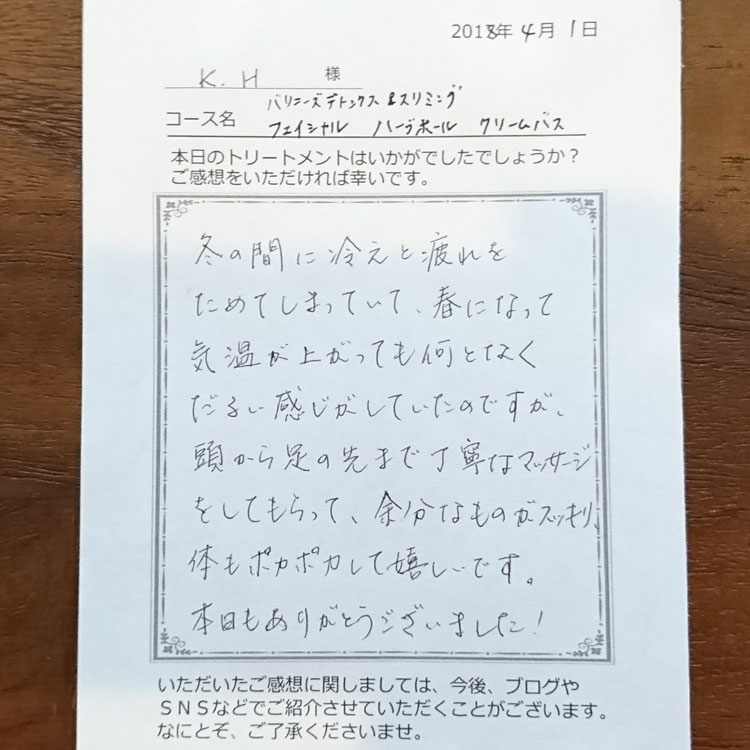 2018年 4月 1日
K. H 様
バリニーズデトックス&スリミング
コース名 フェイシャル ハーブボール クリームバス
本日のトリートメントはいかがでしたでしょうか?
ご感想をいただければ幸いです。
冬の間に冷えと疲れを
ためてしまっていて、春になって
気温が上がっても何となく
だるい感じがしていたのですが、
頭から足の先まで丁寧なマッサージ
をしてもらって、余分なものがスッキリ、
体もポカポカして嬉しいです。
本日もありがとうございました!
いただいたご感想に関しましては、今後、ブログや
SNSなどでご紹介させていただくことがございます。
なにとぞ、ご了承くださいませ。